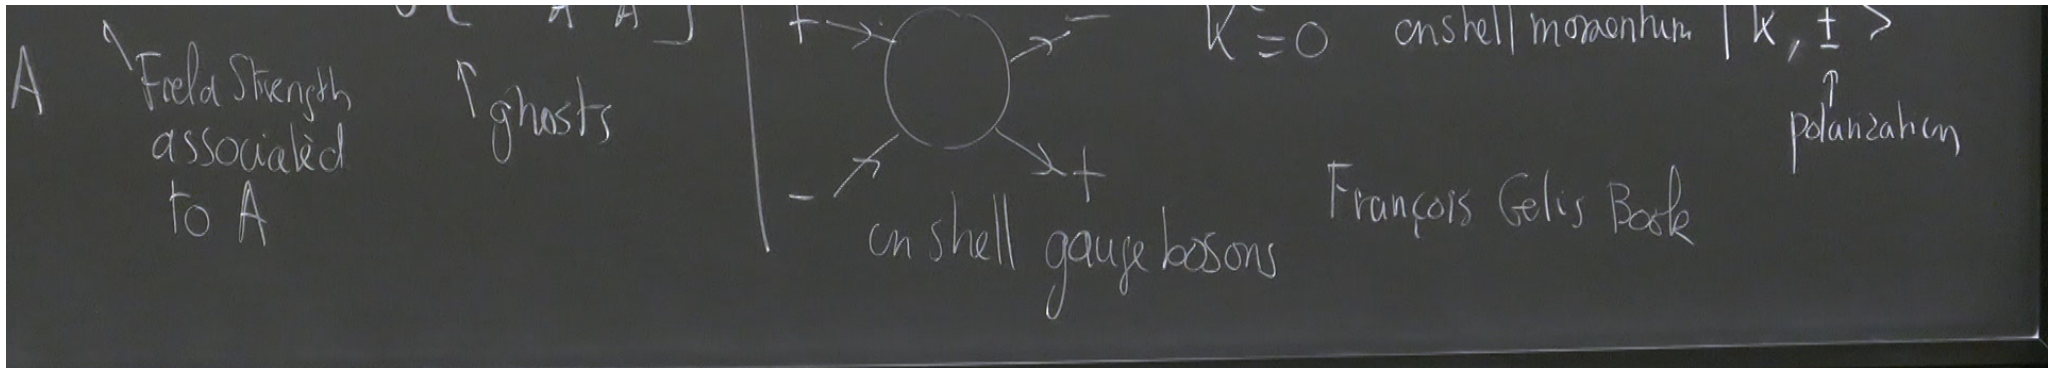 A
Field Strength
associated
to A
ghosts
+ -
- +
on shell gauge bosons
K = 0 onshell momentum | k, ± >
polarization
François Gelis Book